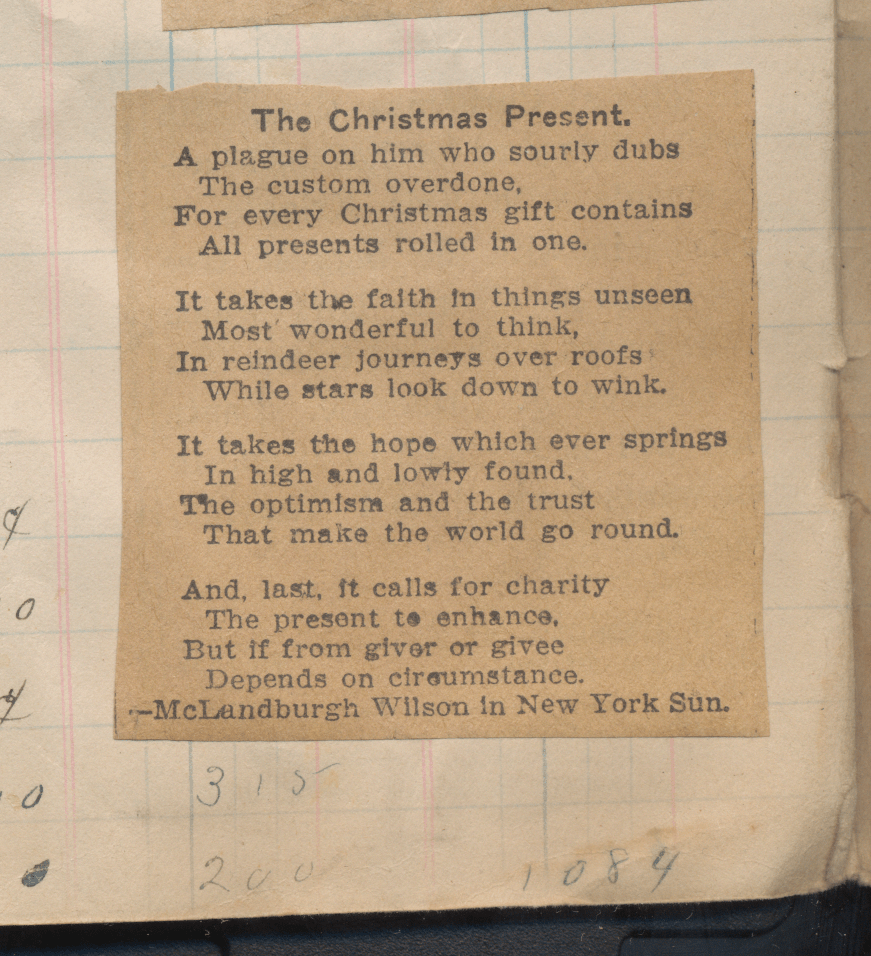 The Christmas Present.
A plague on him who sourly dubs
The custom overdone,
For every Christmas gift contains
All presents rolled in one.
It takes the faith in things unseen
Most wonderful to think,
In reindeer journeys over roofs
While stars look down to wink.
It takes the hope which ever springs
In high and lowly found,
The optimism and the trust
That make the world go round.
And, last, it calls for charity
The present to enhance,
But if from giver or givee
Depends on circumstance.
—McLandburgh Wilson in New York Sun.
0
0
315
200
1084